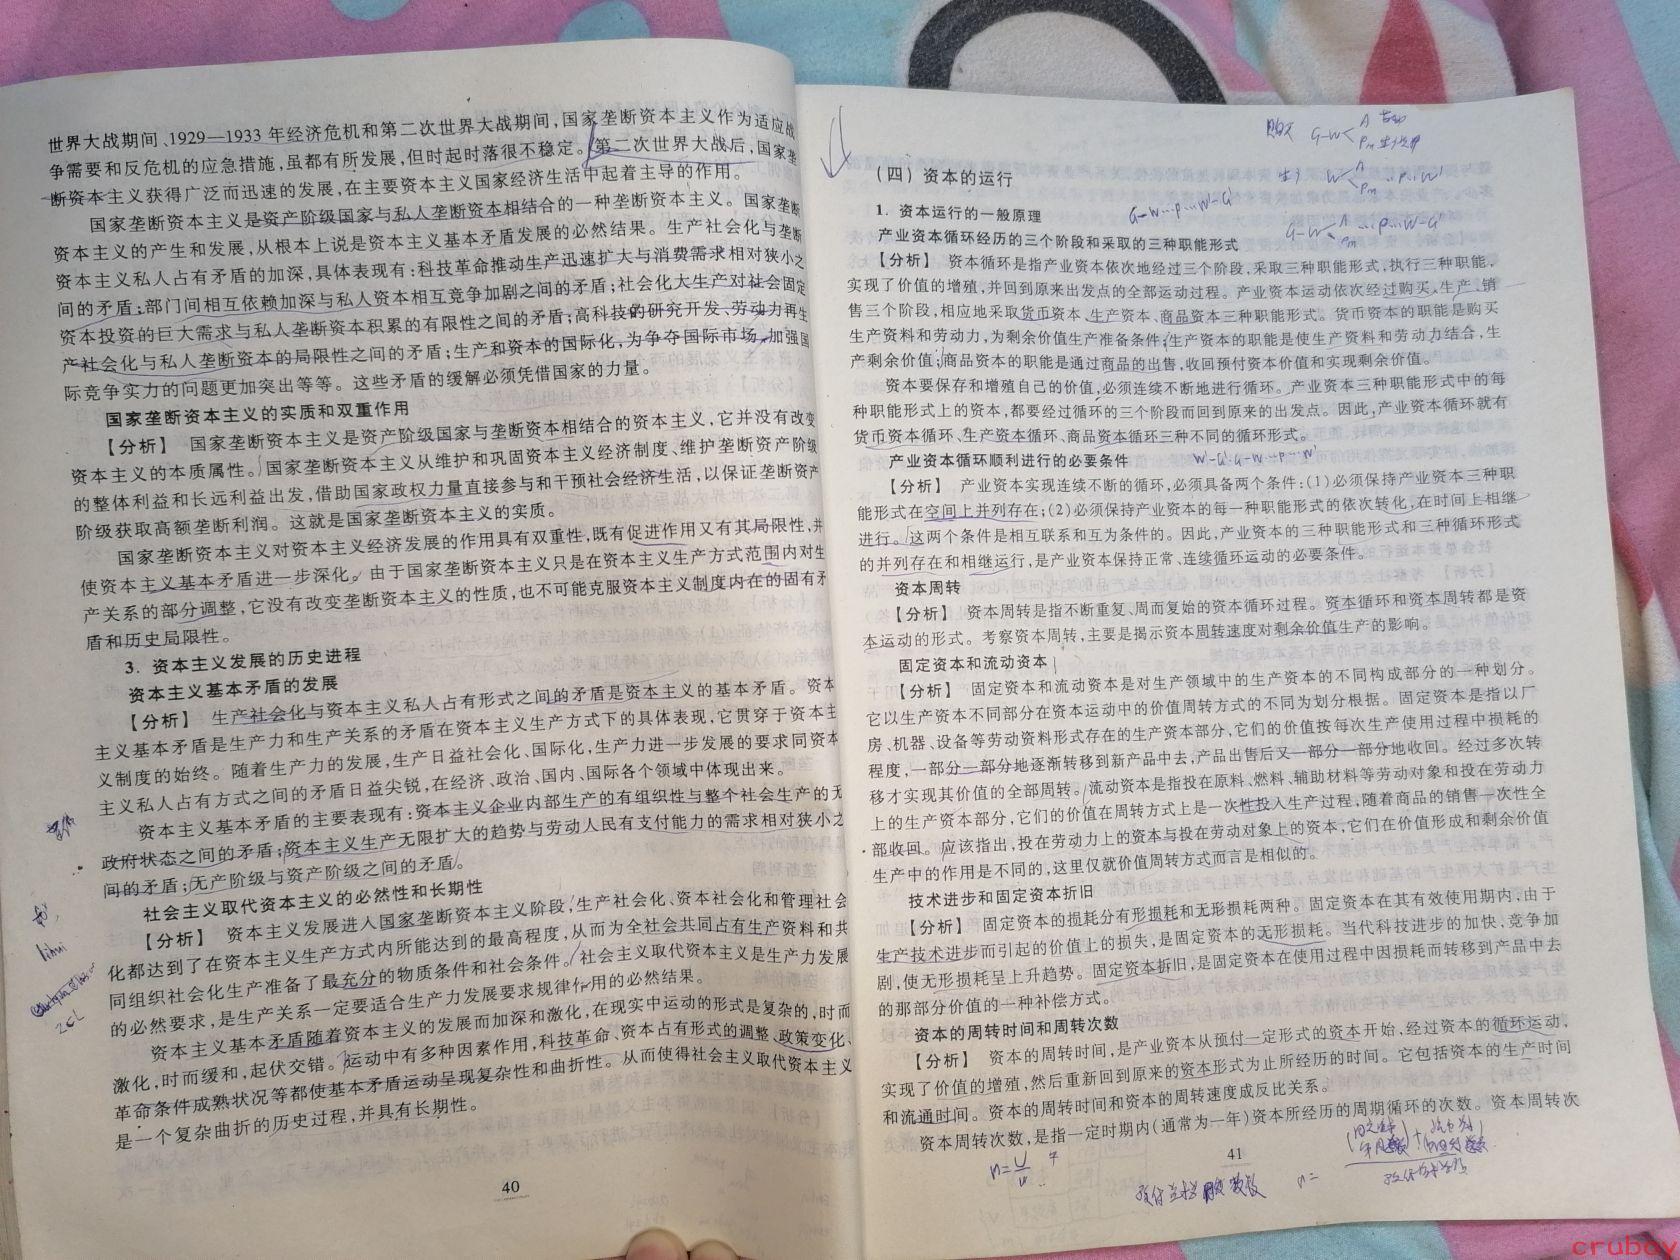 世界大战期间、1929—1933 年经济危机和第二次世界大战期间,国家垄断资本主义作为适应战
争需要和反危机的应急措施,虽都有所发展,但时起时落很不稳定。第二次世界大战后,国家垄
断资本主义获得广泛而迅速的发展,在主要资本主义国家经济生活中起着主导的作用。
国家垄断资本主义是资产阶级国家与私人垄断资本相结合的一种垄断资本主义。国家垄断
资本主义的产生和发展,从根本上说是资本主义基本矛盾发展的必然结果。生产社会化与垄断
资本主义私人占有矛盾的加深,具体表现有:科技革命推动生产迅速扩大与消费需求相对狭小之
间的矛盾;部门间相互依赖加深与私人资本相互竞争加剧之间的矛盾;社会化大生产对社会固定
资本投资的巨大需求与私人垄断资本积累的有限性之间的矛盾;高科技的研究开发、劳动力再生
产社会化与私人垄断资本的局限性之间的矛盾;生产和资本的国际化,为争夺国际市场,加强国
际竞争实力的问题更加突出等等。这些矛盾的缓解必须凭借国家的力量。
国家垄断资本主义的实质和双重作用
【分析】 国家垄断资本主义是资产阶级国家与垄断资本相结合的资本主义,它并没有改变
资本主义的本质属性。国家垄断资本主义从维护和巩固资本主义经济制度、维护垄断资产阶级
的整体利益和长远利益出发,借助国家政权力量直接参与和干预社会经济生活,以保证垄断资产
阶级获取高额垄断利润。这就是国家垄断资本主义的实质。
国家垄断资本主义对资本主义经济发展的作用具有双重性,既有促进作用又有其局限性,并
使资本主义基本矛盾进一步深化。由于国家垄断资本主义只是在资本主义生产方式范围内对生
产关系的部分调整,它没有改变垄断资本主义的性质,也不可能克服资本主义制度内在的固有矛
盾和历史局限性。
3. 资本主义发展的历史进程
资本主义基本矛盾的发展
【分析】 生产社会化与资本主义私人占有形式之间的矛盾是资本主义的基本矛盾。资本
主义基本矛盾是生产力和生产关系的矛盾在资本主义生产方式下的具体表现,它贯穿于资本主
义制度的始终。随着生产力的发展,生产日益社会化、国际化,生产力进一步发展的要求同资本
主义私人占有方式之间的矛盾日益尖锐,在经济、政治、国内、国际各个领域中体现出来。
资本主义基本矛盾的主要表现有:资本主义企业内部生产的有组织性与整个社会生产的无
政府状态之间的矛盾;资本主义生产无限扩大的趋势与劳动人民有支付能力的需求相对狭小之
间的矛盾;无产阶级与资产阶级之间的矛盾。
社会主义取代资本主义的必然性和长期性
【分析】 资本主义发展进入国家垄断资本主义阶段,生产社会化、资本社会化和管理社会
化都达到了在资本主义生产方式内所能达到的最高程度,从而为全社会共同占有生产资料和共
同组织社会化生产准备了最充分的物质条件和社会条件。社会主义取代资本主义是生产力发展
的必然要求,是生产关系一定要适合生产力发展要求规律作用的必然结果。
资本主义基本矛盾随着资本主义的发展而加深和激化,在现实中运动的形式是复杂的,时而
激化,时而缓和,起伏交错。运动中有多种因素作用,科技革命、资本占有形式的调整、政策变化、
革命条件成熟状况等都使基本矛盾运动呈现复杂性和曲折性。从而使得社会主义取代资本主义
是一个复杂曲折的历史过程,并具有长期性。
40
(四)资本的运行
1. 资本运行的一般原理
G-W…P…W'-G'
产业资本循环经历的三个阶段和采取的三种职能形式
【分析】 资本循环是指产业资本依次地经过三个阶段,采取三种职能形式,执行三种职能,
实现了价值的增殖,并回到原来出发点的全部运动过程。产业资本运动依次经过购买、生产、销
售三个阶段,相应地采取货币资本、生产资本、商品资本三种职能形式。货币资本的职能是购买
生产资料和劳动力,为剩余价值生产准备条件;生产资本的职能是使生产资料和劳动力结合,生
产剩余价值;商品资本的职能是通过商品的出售,收回预付资本价值和实现剩余价值。
资本要保存和增殖自己的价值,必须连续不断地进行循环。产业资本三种职能形式中的每
种职能形式上的资本,都要经过循环的三个阶段而回到原来的出发点。因此,产业资本循环就有
货币资本循环、生产资本循环、商品资本循环三种不同的循环形式。
产业资本循环顺利进行的必要条件
W'-G'·G-W…P…W'
【分析】 产业资本实现连续不断的循环,必须具备两个条件:(1)必须保持产业资本三种职
能形式在空间上并列存在;(2)必须保持产业资本的每一种职能形式的依次转化,在时间上相继
进行。这两个条件是相互联系和互为条件的。因此,产业资本的三种职能形式和三种循环形式
的并列存在和相继运行,是产业资本保持正常、连续循环运动的必要条件。
资本周转
【分析】 资本周转是指不断重复、周而复始的资本循环过程。资本循环和资本周转都是资
本运动的形式。考察资本周转,主要是揭示资本周转速度对剩余价值生产的影响。
固定资本和流动资本
【分析】 固定资本和流动资本是对生产领域中的生产资本的不同构成部分的一种划分。
它以生产资本不同部分在资本运动中的价值周转方式的不同为划分根据。固定资本是指以厂
房、机器、设备等劳动资料形式存在的生产资本部分,它们的价值按每次生产使用过程中损耗的
程度,一部分一部分地逐渐转移到新产品中去,产品出售后又一部分一部分地收回。经过多次转
移才实现其价值的全部周转。流动资本是指投在原料、燃料、辅助材料等劳动对象和投在劳动力
上的生产资本部分,它们的价值在周转方式上是一次性投入生产过程,随着商品的销售一次性全
部收回。应该指出,投在劳动力上的资本与投在劳动对象上的资本,它们在价值形成和剩余价值
生产中的作用是不同的,这里仅就价值周转方式而言是相似的。
技术进步和固定资本折旧
【分析】 固定资本的损耗分有形损耗和无形损耗两种。固定资本在其有效使用期内,由于
生产技术进步而引起的价值上的损失,是固定资本的无形损耗。当代科技进步的加快、竞争加
剧,使无形损耗呈上升趋势。固定资本折旧,是固定资本在使用过程中因损耗而转移到产品中去
的那部分价值的一种补偿方式。
资本的周转时间和周转次数
【分析】 资本的周转时间,是产业资本从预付一定形式的资本开始,经过资本的循环运动,
实现了价值的增殖,然后重新回到原来的资本形式为止所经历的时间。它包括资本的生产时间
和流通时间。资本的周转时间和资本的周转速度成反比关系。
资本周转次数,是指一定时期内(通常为一年)资本所经历的周期循环的次数。资本周转次
41
cruboy